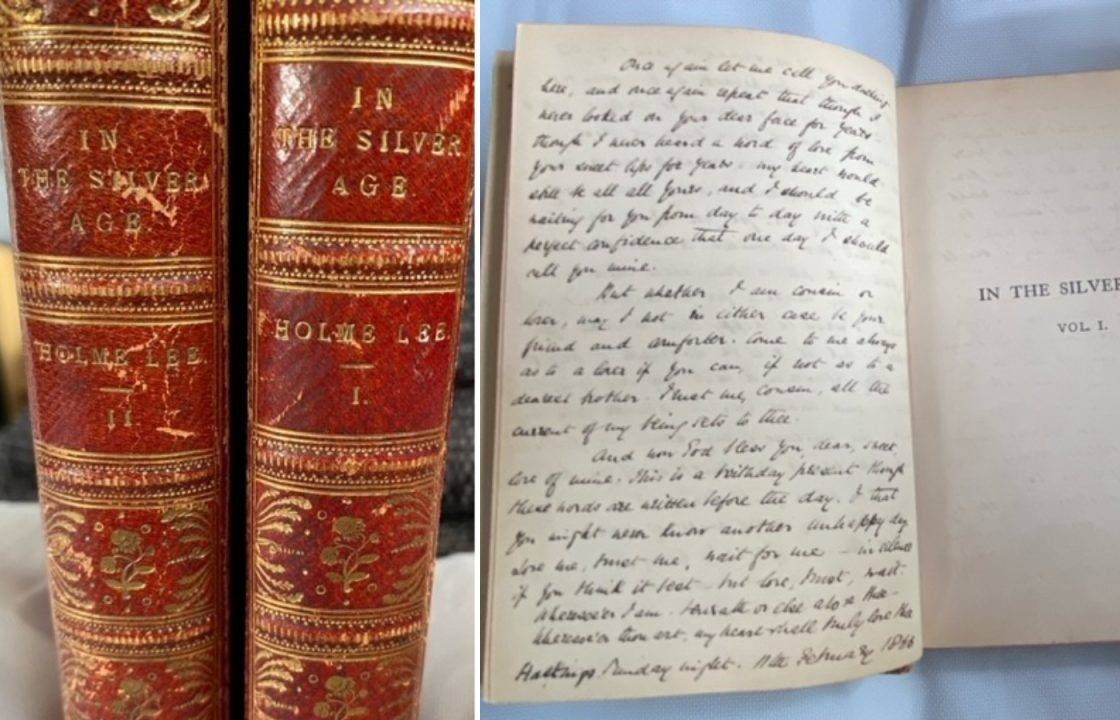 IN
THE SILVER
AGE.
HOLME LEE.
II.
IN
THE SILVER
AGE.
HOLME LEE.
I.
Once again let me call you darling
here, and once again repeat that though I
never looked on your dear face for years
though I never heard a word of love from
your sweet lips for years - my heart would
still be all all yours, and I should be
waiting for you from day to day with a
perfect confidence that one day I should
call you mine.
But whether I am cousin or
lover, may I not in either case be your
friend and comforter. Come to me always
as to a lover if you can, if not as to a
dearest brother. Trust me, cousin, all the
current of my being sets to thee.
And now God bless you, dear, sweet
love of mine. This is a birthday present though
these words are written before the day. O that
you might never know another unhappy day
love me, trust me, wait for me - in silence
if you think it best - but love, trust, wait.
Wheresoe'er I am or else above thee -
Wheresoe'er thou art, my heart shall truly love thee
Hastings Sunday night. 11th February 1866
IN THE SILVER
VOL. I.